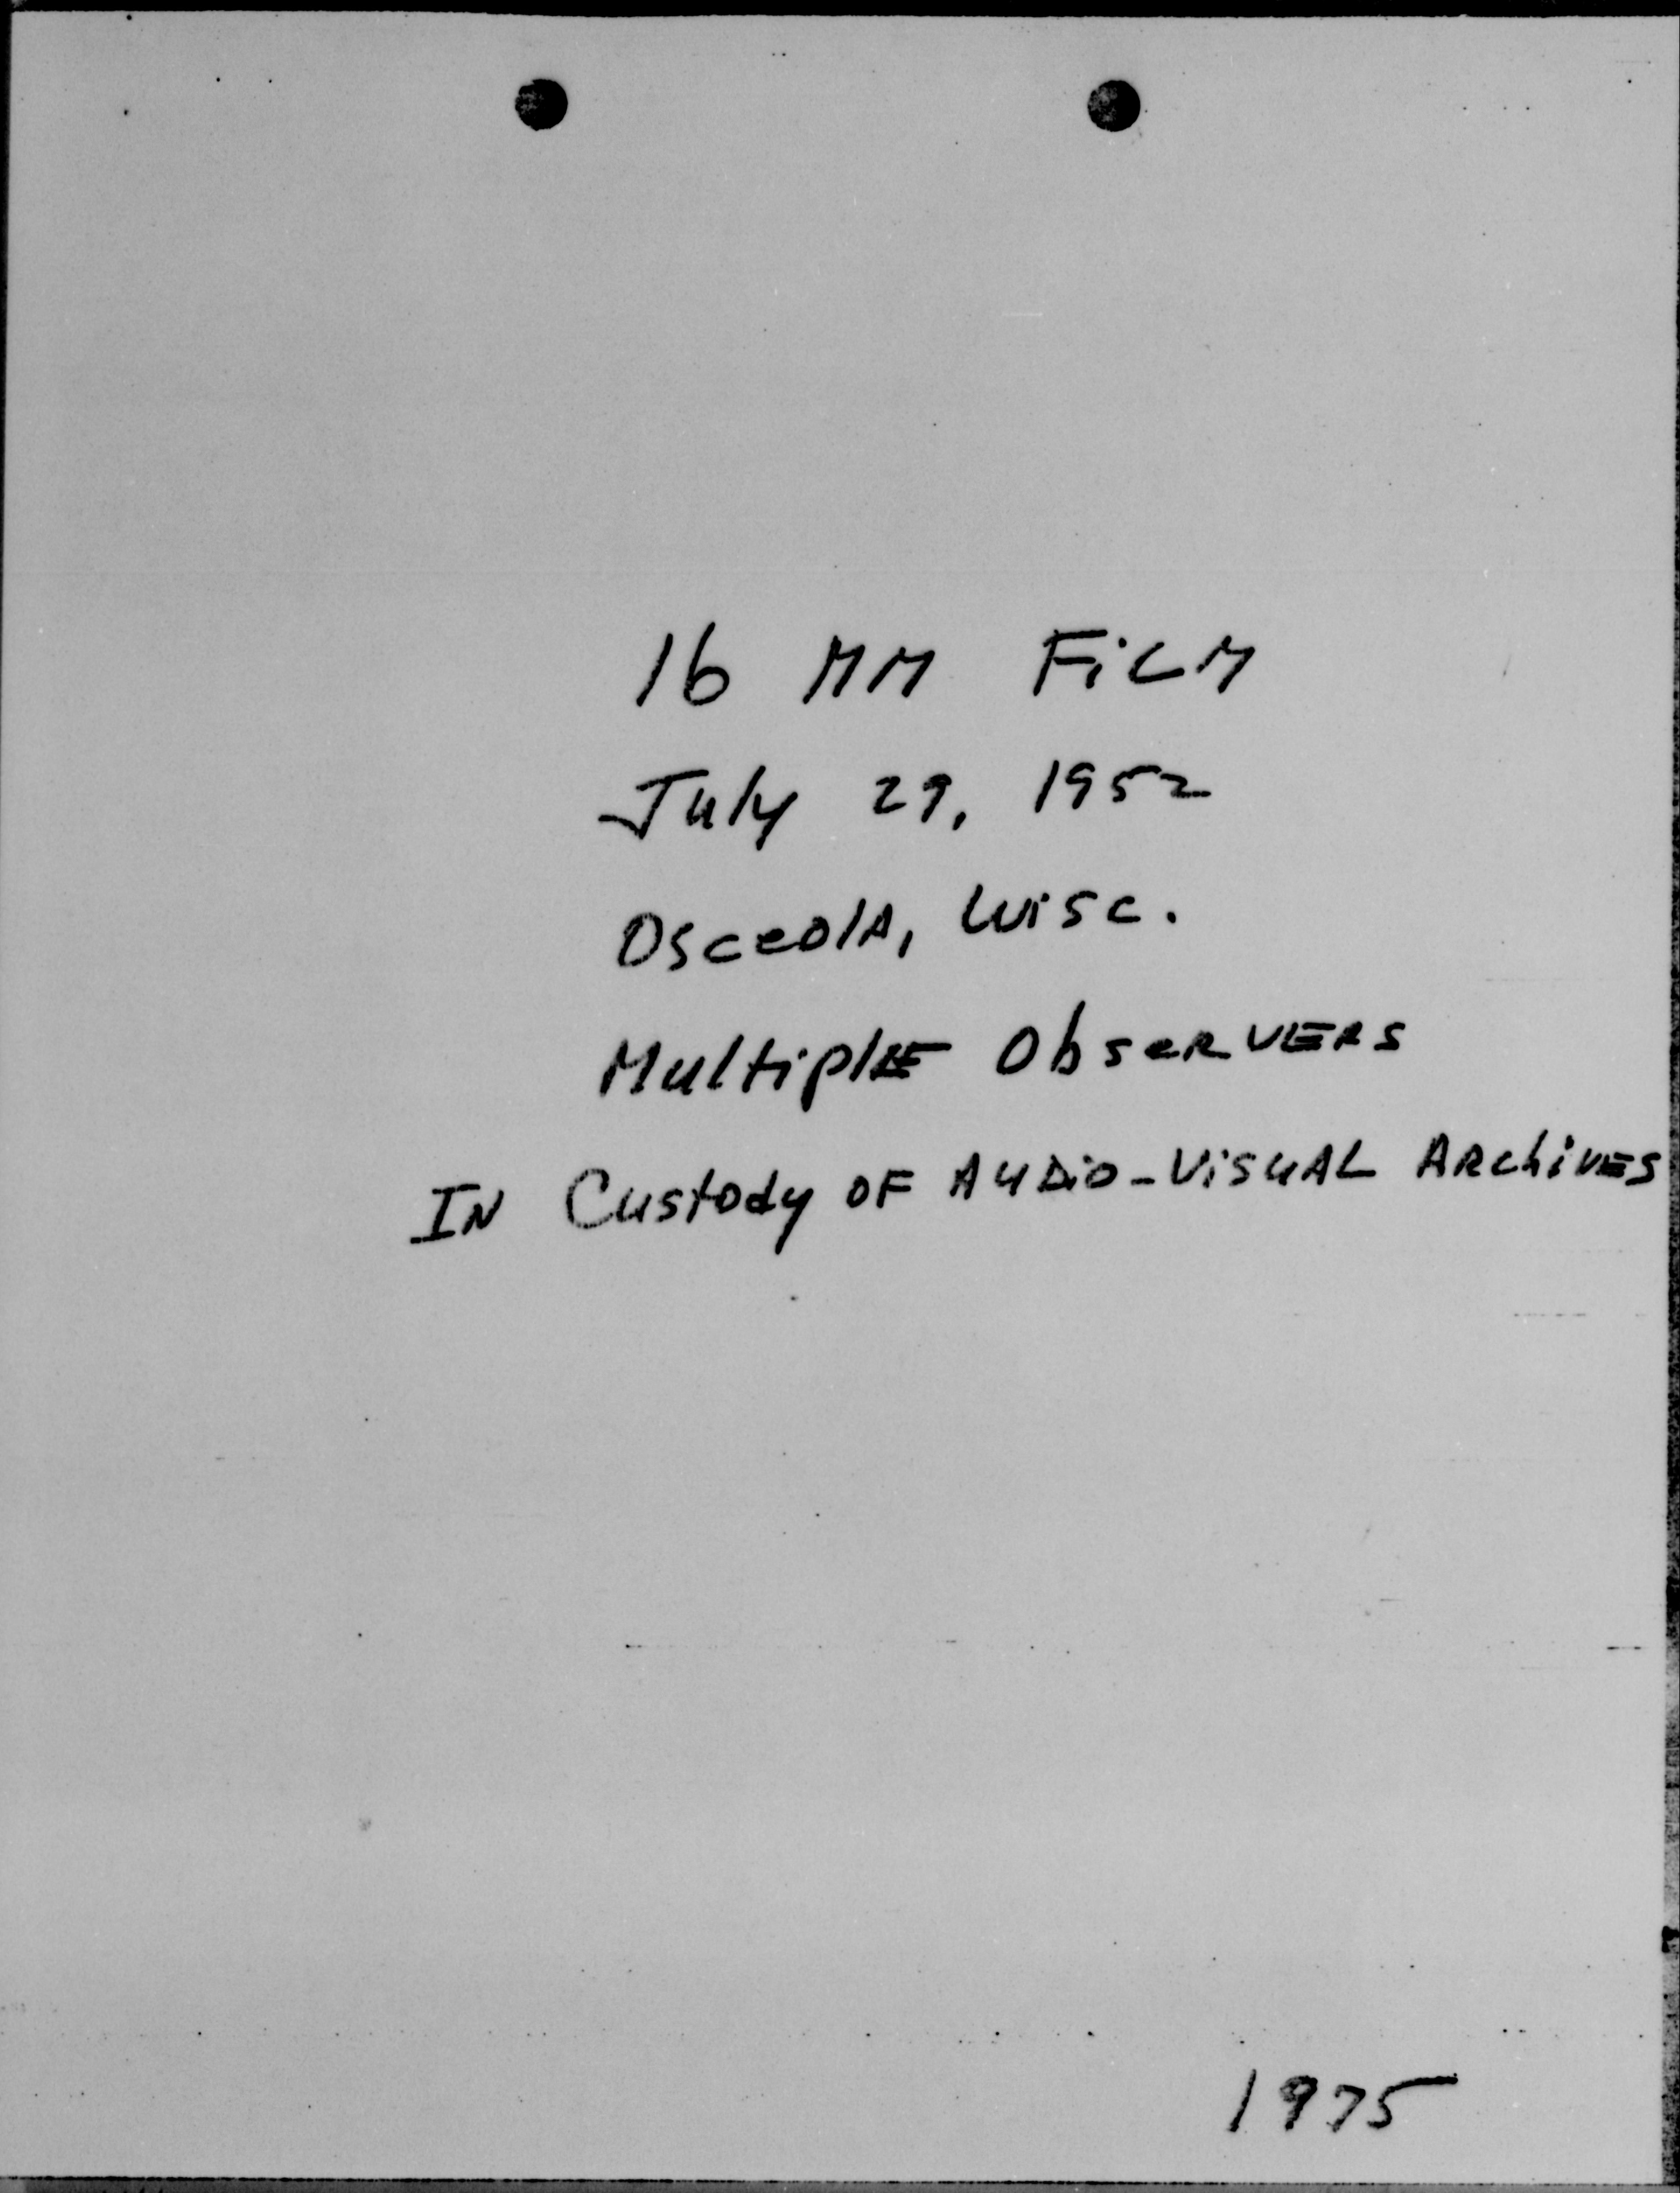 16 MM FiLM
July 29, 1952
OsceolA, Wisc.
MultiplE ObseRVERS
IN Custody OF AuDio-ViSuAL ARchiVES
1975